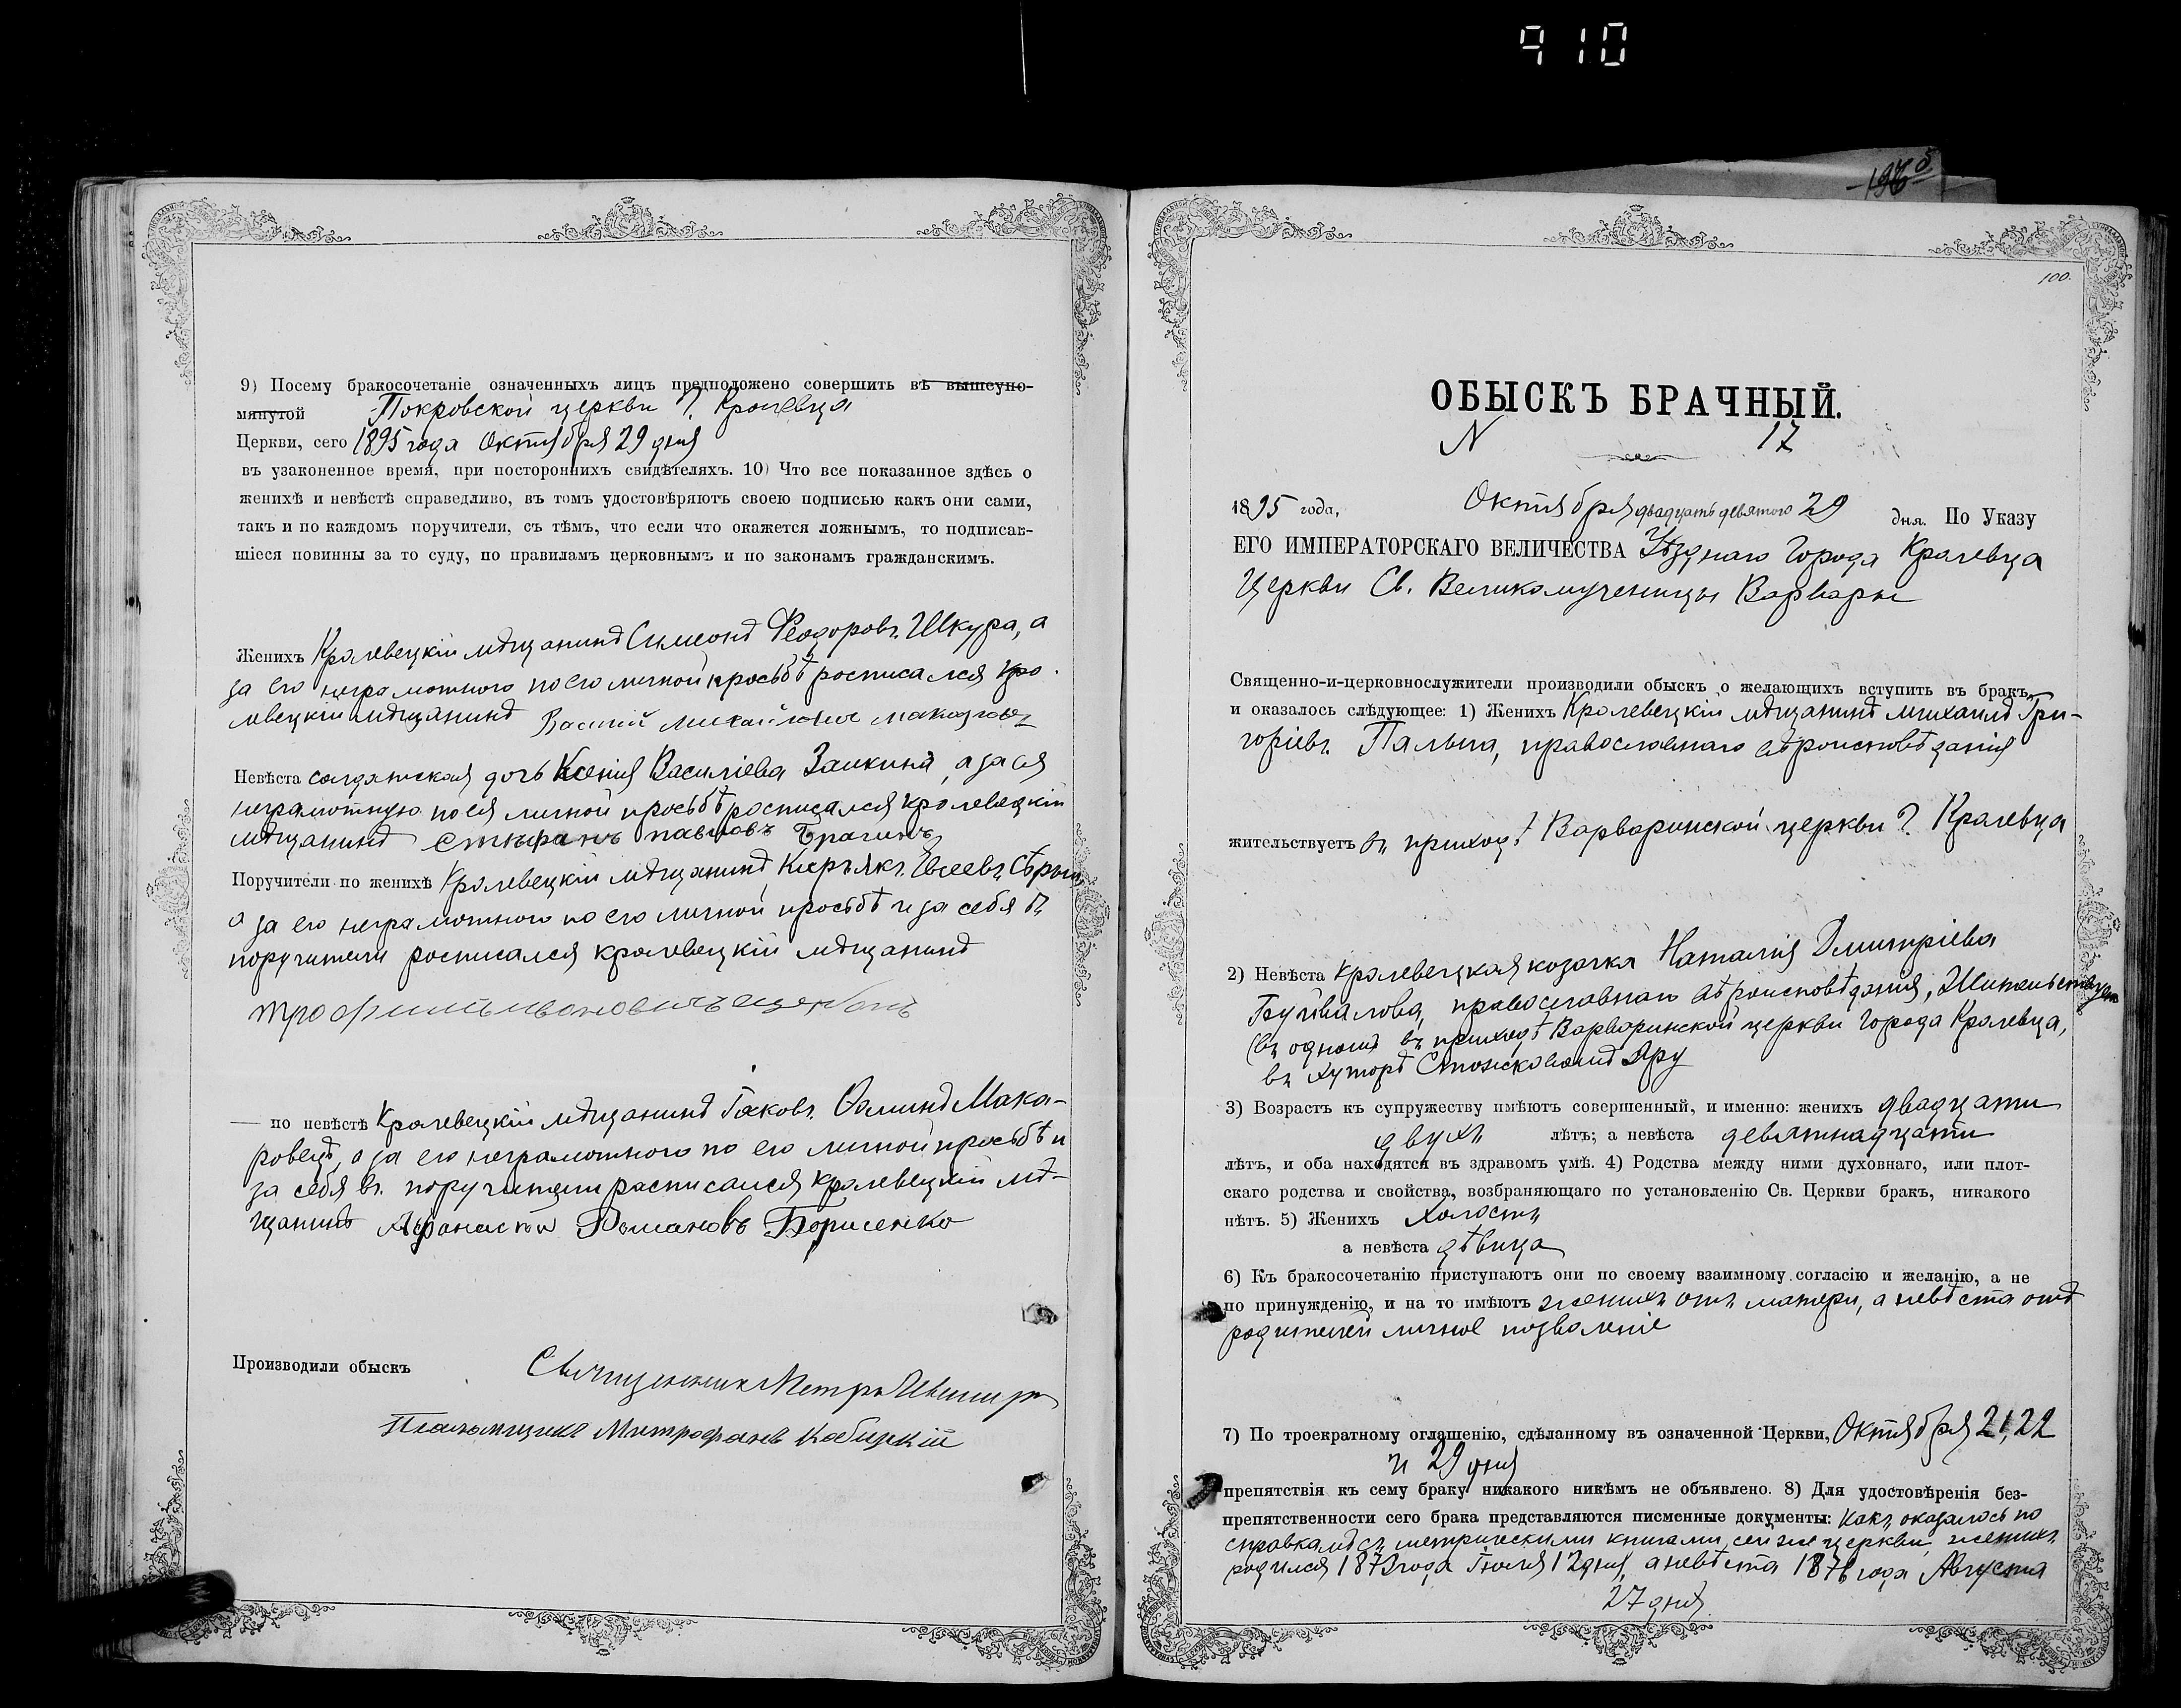 910
-1965
9) Посему бракосочетаніе означенныхъ лицъ предположено совершить въ вышеупо-
мянутой Покровской церкви г. Кролевца
Церкви, сего 1895 года Октября 29 дня
въ узаконенное время, при постороннихъ свидѣтеляхъ. 10) Что все показанное здѣсь о
женихѣ и невѣстѣ справедливо, въ томъ удостовѣряютъ своею подписью какъ они сами,
такъ и по каждомъ поручители, съ тѣмъ, что если что окажется ложнымъ, то подписав-
шіеся повинны за то суду, по правиламъ церковнымъ и по законамъ гражданскимъ.
Женихъ Кролевецкій мѣщанинъ Симеонъ Ѳеодоровъ Шкура, а
за его неграмотного по его личной просьбѣ росписался кро-
левецкій мѣщанинъ Василій
Невѣста солдатская дочь Ксенія Василіева Заикина, а за ея
неграмотную по ея личной просьбѣ росписался кролевецкій
мѣщанинъ Стефанъ павловъ Брагинъ
Поручители по женихѣ Кролевецкій мѣщанинъ Кирьякъ Евсеевъ Сѣрый
а за его неграмотного по его личной просьбѣ и за себя въ
поручители росписался кролевецкій мѣщанинъ
трофимъ ивановичъ
— по невѣстѣ Кролевецкій мѣщанинъ Іаковъ Ѳоминъ Мака-
ровецъ, а за его неграмотного по его личной просьбѣ и
за себя въ поручители расписался кролевецкій мѣ-
щанинъ Афанасий Романовъ Борисенко
Производили обыскъ Священникъ Петръ
Псаломщикъ Митрофанъ Кобицкій
100.
ОБЫСКЪ БРАЧНЫЙ.
N 17
1895 года, Октября двадцать девятого 29 дня. По Указу
ЕГО ИМПЕРАТОРСКАГО ВЕЛИЧЕСТВА Уѣзднаго Города Кролевца
Церкви Св. Великомученицы Варвары
Священно-и-церковнослужители производили обыскъ о желающихъ вступить въ бракъ,
и оказалось слѣдующее: 1) Женихъ Кролевецкій мѣщанинъ Михаилъ Гри-
горіевъ Пальга, православнаго вѣроисповѣданія
жительствуетъ въ приходѣ Варваринской церкви г. Кролевца
2) Невѣста кролевецкая козачка Наталія Дмитріева
православнаго вѣроисповѣданія, Жительствуетъ
въ приходѣ Варваринской церкви города Кролевца,
въ хуторѣ Яру
3) Возрастъ къ супружеству имѣютъ совершенный, и именно: женихъ двадцати
двухъ лѣтъ; а невѣста девятнадцати
лѣтъ, и оба находятся въ здравомъ умѣ. 4) Родства между ними духовнаго, или плот-
скаго родства и свойства, возбраняющаго по установленію Св. Церкви бракъ, никакого
нѣтъ. 5) Женихъ холостъ
а невѣста дѣвица
6) Къ бракосочетанію приступаютъ они по своему взаимному согласію и желанію, а не
по принужденію, и на то имѣютъ женихъ отъ матери, а невѣста отъ
родителей личное позволеніе
7) По троекратному оглашенію, сдѣланному въ означенной Церкви, Октября 21, 22
и 29 дня
препятствія къ сему браку никакого никѣмъ не объявлено. 8) Для удостовѣренія без-
препятственности сего брака представляются писменные документы: какъ оказалось по
справкамъ съ метрическими книгами сей же церкви, женихъ
родился 1873 года Іюля 12 дня, а невѣста 1876 года Августа
27 дня.